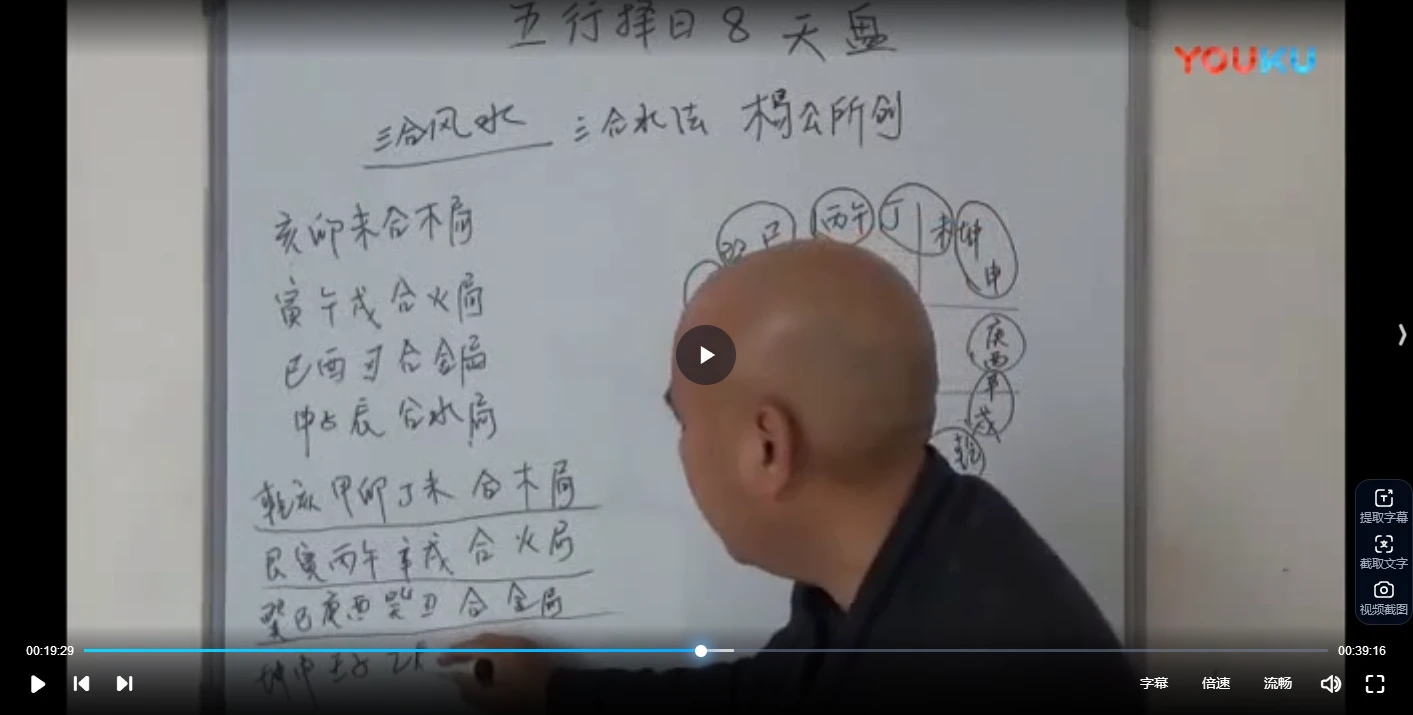 五行择日8 天盘
YOUKU
三合风水 三合水法 杨公所创
亥卯未合木局
寅午戌合火局
巳酉丑合金局
申子辰合水局
乾亥甲卯丁未合木局
艮寅丙午辛戌合火局
巽巳庚酉癸丑合金局
坤申壬子乙
巽巳 丙午 丁未 坤申
庚酉
辛戌
乾
提取字幕
截取文字
视频截图
00:19:29
00:39:16
字幕 倍速 流畅